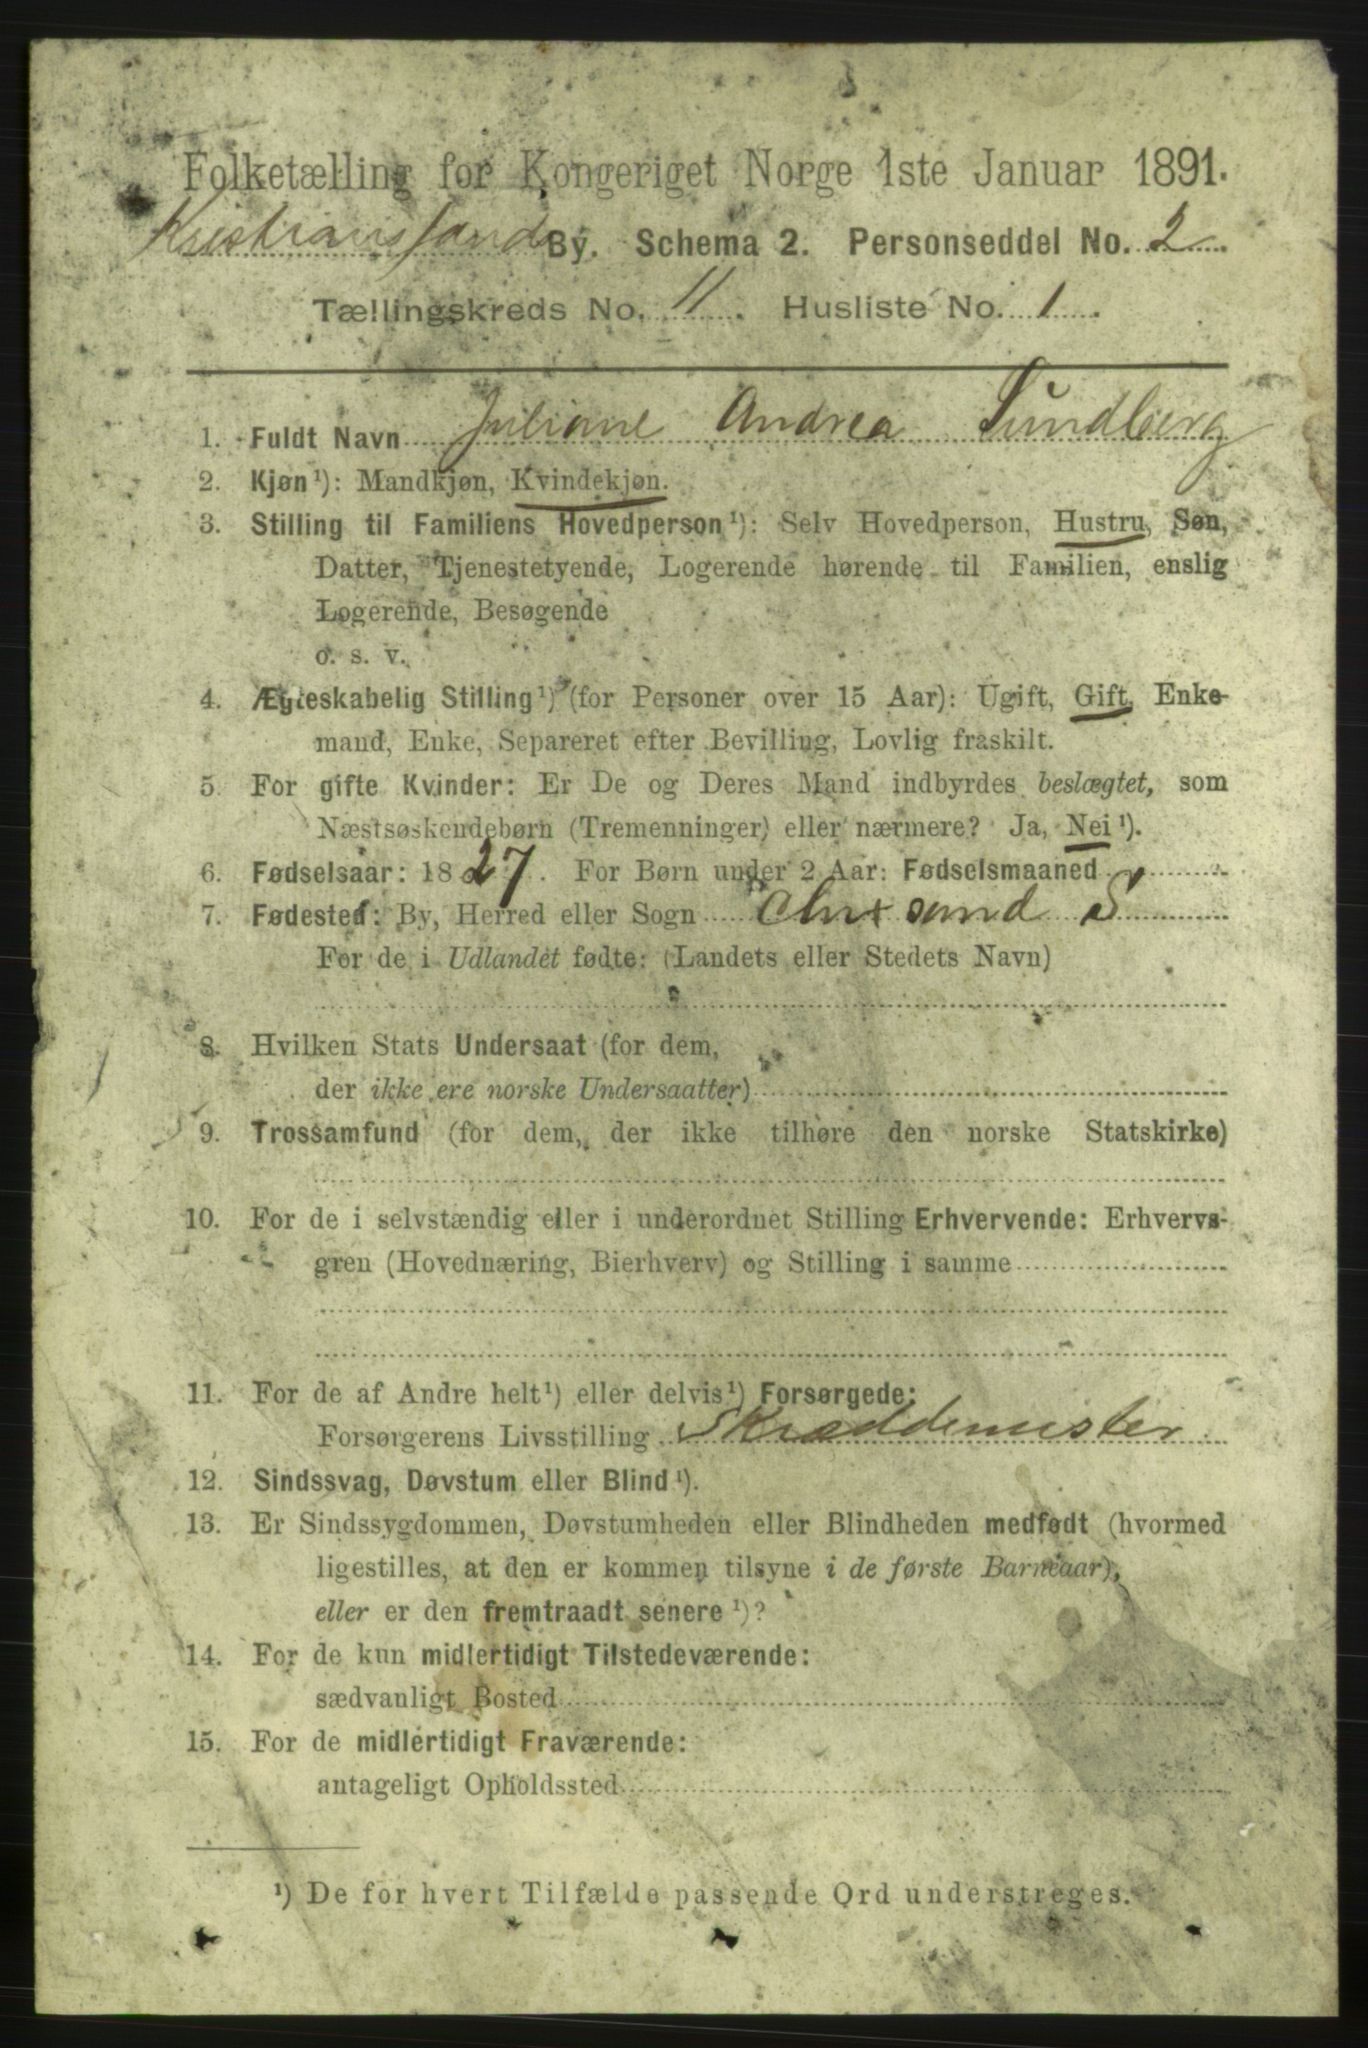 Folketælling for Kongeriget Norge 1ste Januar 1891.
Kristianssands By. Schema 2. Personseddel No. 2
Tællingskreds No. 11. Husliste No. 1.
1. Fuldt Navn Juliane Andrea Sundberg
2. Kjøn ¹): Mandkjøn, Kvindekjøn.
3. Stilling til Familiens Hovedperson ¹): Selv Hovedperson, Hustru, Søn,
Datter, Tjenestetyende, Logerende hørende til Familien, enslig
Logerende, Besøgende
o. s. v.
4. Ægteskabelig Stilling ¹) (for Personer over 15 Aar): Ugift, Gift, Enke-
mand, Enke, Separeret efter Bevilling, Lovlig fraskilt.
5. For gifte Kvinder: Er De og Deres Mand indbyrdes beslægtet, som
Næstsøskendebørn (Tremenninger) eller nærmere? Ja, Nei ¹).
6. Fødselsaar: 1827. For Børn under 2 Aar: Fødselsmaaned
7. Fødested: By, Herred eller Sogn Chrxsand S
For de i Udlandet fødte: (Landets eller Stedets Navn)
8. Hvilken Stats Undersaat (for dem,
der ikke ere norske Undersaatter)
9. Trossamfund (for dem, der ikke tilhøre den norske Statskirke)
10. For de i selvstændig eller i underordnet Stilling Erhvervende: Erhvervs-
gren (Hovednæring, Bierhverv) og Stilling i samme
11. For de af Andre helt ¹) eller delvis ¹) Forsørgede:
Forsørgerens Livsstilling Skræddemester
12. Sindssvag, Døvstum eller Blind ¹).
13. Er Sindssygdommen, Døvstumheden eller Blindheden medfødt (hvormed
ligestilles, at den er kommen tilsyne i de første Barneaar),
eller er den fremtraadt senere ¹)?
14. For de kun midlertidigt Tilstedeværende:
sædvanligt Bosted
15. For de midlertidigt Fraværende:
antageligt Opholdssted
¹) De for hvert Tilfælde passende Ord understreges.